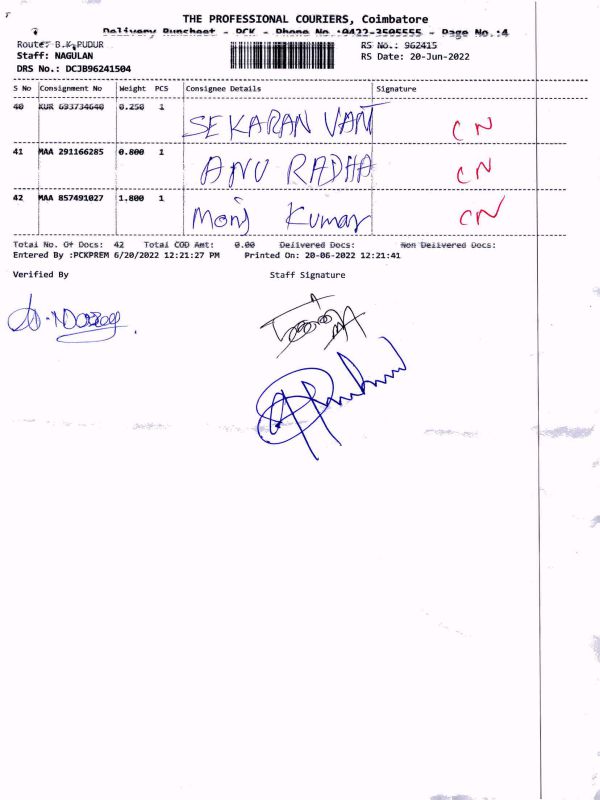 THE PROFESSIONAL COURIERS, Coimbatore
Delivery Runsheet - PCK - Phone No.:0422-3505555 - Page No.:4
Route: B.K.PUDUR RS No.: 962415
Staff: NAGULAN RS Date: 20-Jun-2022
DRS No.: DCJB96241504
S No Consignment No Weight PCS Consignee Details Signature
40 KUR 693734640 0.250 1 SEKARAN VANT CN
41 MAA 291166285 0.800 1 ANU RADHA CN
42 MAA 857491027 1.800 1 Monj Kumar CN
Total No. Of Docs: 42 Total COD Amt: 0.00 Delivered Docs: Non Delivered Docs:
Entered By :PCKPREM 6/20/2022 12:21:27 PM Printed On: 20-06-2022 12:21:41
Verified By Staff Signature